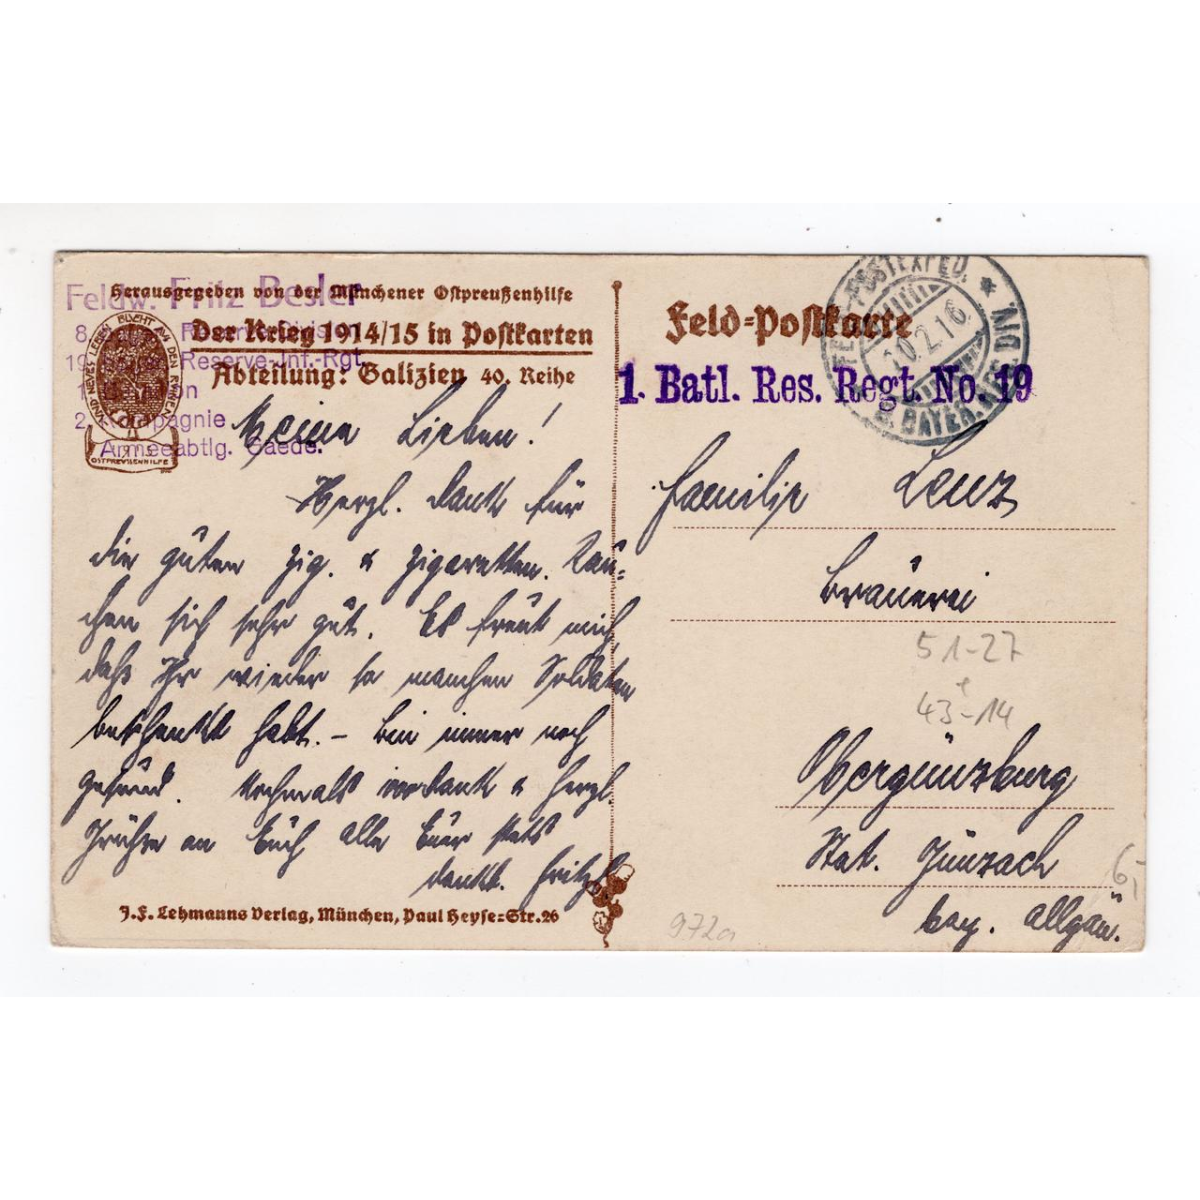 Herausgegeben von der Münchener Ostpreußenhilfe
Der Krieg 1914/15 in Postkarten
Abteilung: Galizien 40. Reihe
Feldw. Fritz Besler
8. Reserve-Division
19. Reserve-Inf.-Rgt.
1. Bataillon
2. Kompagnie
Armeeabtlg. Gaede.
UND NEUES LEBEN BLÜHT AUS DEN RUINEN
1915
OSTPREUSSENHILFE
Meine Lieben!
Herzl. Dank für
die guten Zig. & Zigaretten. Rau=
chen sich sehr gut. Es freut mich,
daß Ihr wieder so manchen Soldaten
beschenkt habt. – Bin immer noch
gesund. Nochmals Dank & herzl.
Grüße an Euch alle Euer stets
dankb. Fritz
J.F. Lehmanns Verlag, München, Paul Heyse=Str. 26
Feld=Postkarte
FELD-POSTEXPED.
10.2.16.
8. BAYER. RES. DIV.
1. Batl. Res. Regt. No. 19
Familie Lenz
Brauerei
51-27
43-14
Obergünzburg
Stat. Günzach
bay. Allgäu.
6,-
972a